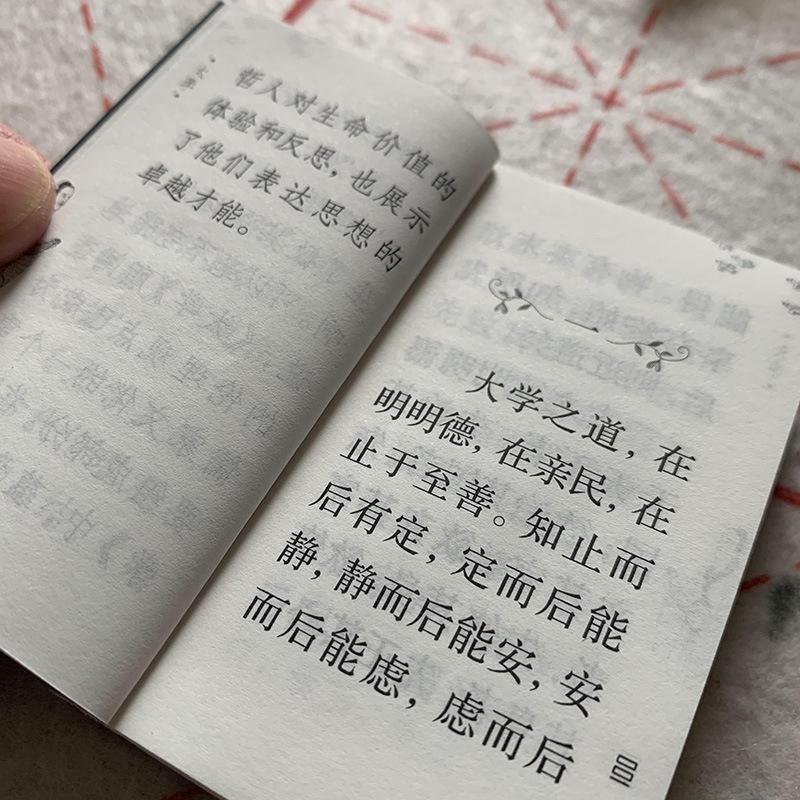 ·大学·
哲人对生命价值的
体验和反思，也展示
了他们表达思想的
卓越才能。
一
大学之道，在
明明德，在亲民，在
止于至善。知止而
后有定，定而后能
静，静而后能安，安
而后能虑，虑而后